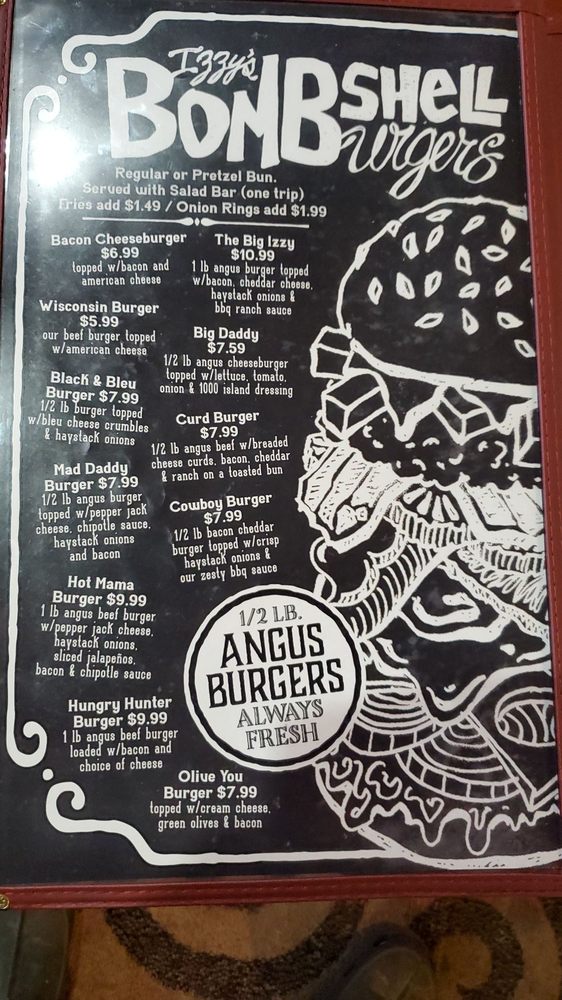 Izzy's
BOMBSHELL
Burgers
Regular or Pretzel Bun.
Served with Salad Bar (one trip)
Fries add $1.49 / Onion Rings add $1.99
Bacon Cheeseburger
$6.99
topped w/bacon and
american cheese
Wisconsin Burger
$5.99
our beef burger topped
w/american cheese
Black & Bleu
Burger $7.99
1/2 lb burger topped
w/bleu cheese crumbles
& haystack onions
Mad Daddy
Burger $7.99
1/2 lb angus burger
topped w/pepper jack
cheese, chipotle sauce,
haystack onions
and bacon
Hot Mama
Burger $9.99
1 lb angus beef burger
w/pepper jack cheese,
haystack onions,
sliced jalapeños,
bacon & chipotle sauce
Hungry Hunter
Burger $9.99
1 lb angus beef burger
loaded w/bacon and
choice of cheese
The Big Izzy
$10.99
1 lb angus burger topped
w/bacon, cheddar cheese,
haystack onions &
bbq ranch sauce
Big Daddy
$7.59
1/2 lb angus cheeseburger
topped w/lettuce, tomato,
onion & 1000 island dressing
Curd Burger
$7.99
1/2 lb angus beef w/breaded
cheese curds, bacon, cheddar
& ranch on a toasted bun
Cowboy Burger
$7.99
1/2 lb bacon cheddar
burger topped w/crisp
haystack onions &
our zesty bbq sauce
1/2 LB.
ANGUS
BURGERS
ALWAYS
FRESH
Olive You
Burger $7.99
topped w/cream cheese,
green olives & bacon